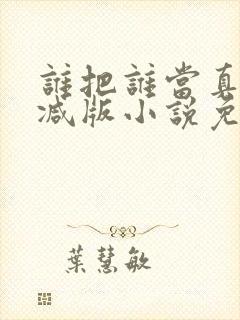 誰把誰當真
减版小說免
葉慧敏